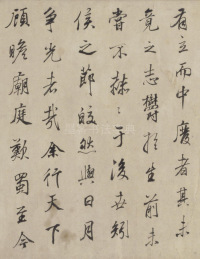 有立而中廢者其未
竟之志鬱於生前未
嘗不赫〻于後世矧
侯之節皎然與日月
争光者哉余行天下
顧瞻廟庭歎蜀至今